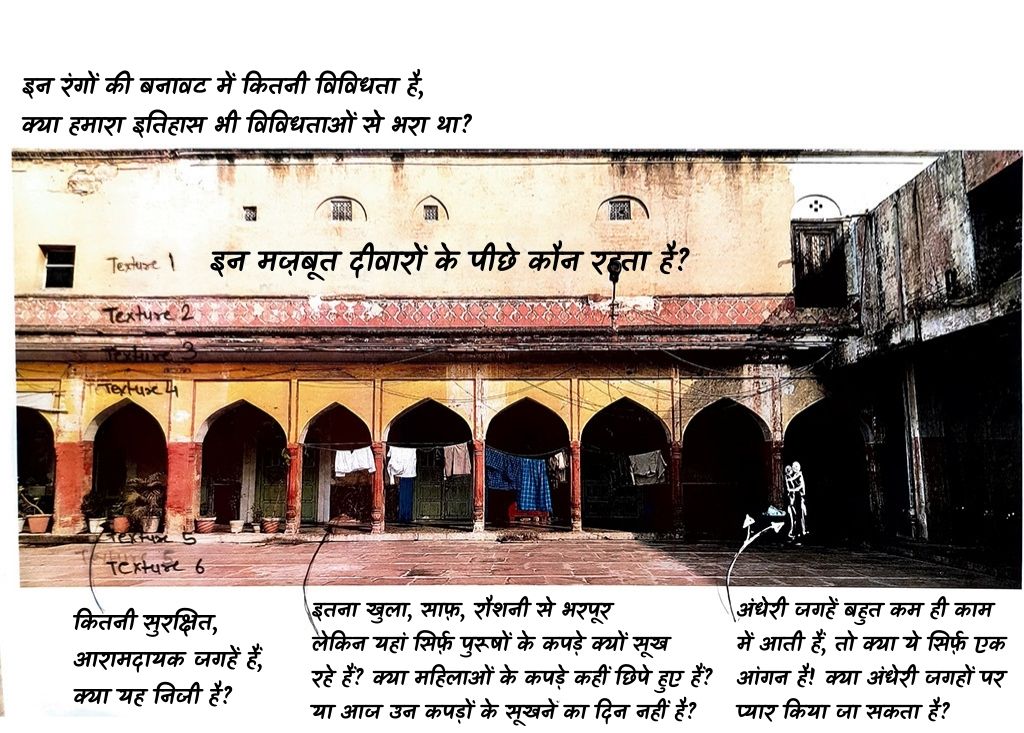 इन रंगों की बनावट में कितनी विविधता है,
क्या हमारा इतिहास भी विविधताओं से भरा था?
Texture 1
इन मज़बूत दीवारों के पीछे कौन रहता है?
Texture 2
Texture 3
Texture 4
Texture 5
Texture 5
Texture 6
कितनी सुरक्षित,
आरामदायक जगहें हैं,
क्या यह निजी है?
इतना खुला, साफ़, रौशनी से भरपूर
लेकिन यहां सिर्फ़ पुरूषों के कपड़े क्यों सूख
रहे हैं? क्या महिलाओं के कपड़े कहीं छिपे हुए हैं?
या आज उन कपड़ों के सूखने का दिन नहीं है?
अंधेरी जगहें बहुत कम ही काम
में आती हैं, तो क्या ये सिर्फ़ एक
आंगन है! क्या अंधेरी जगहों पर
प्यार किया जा सकता है?